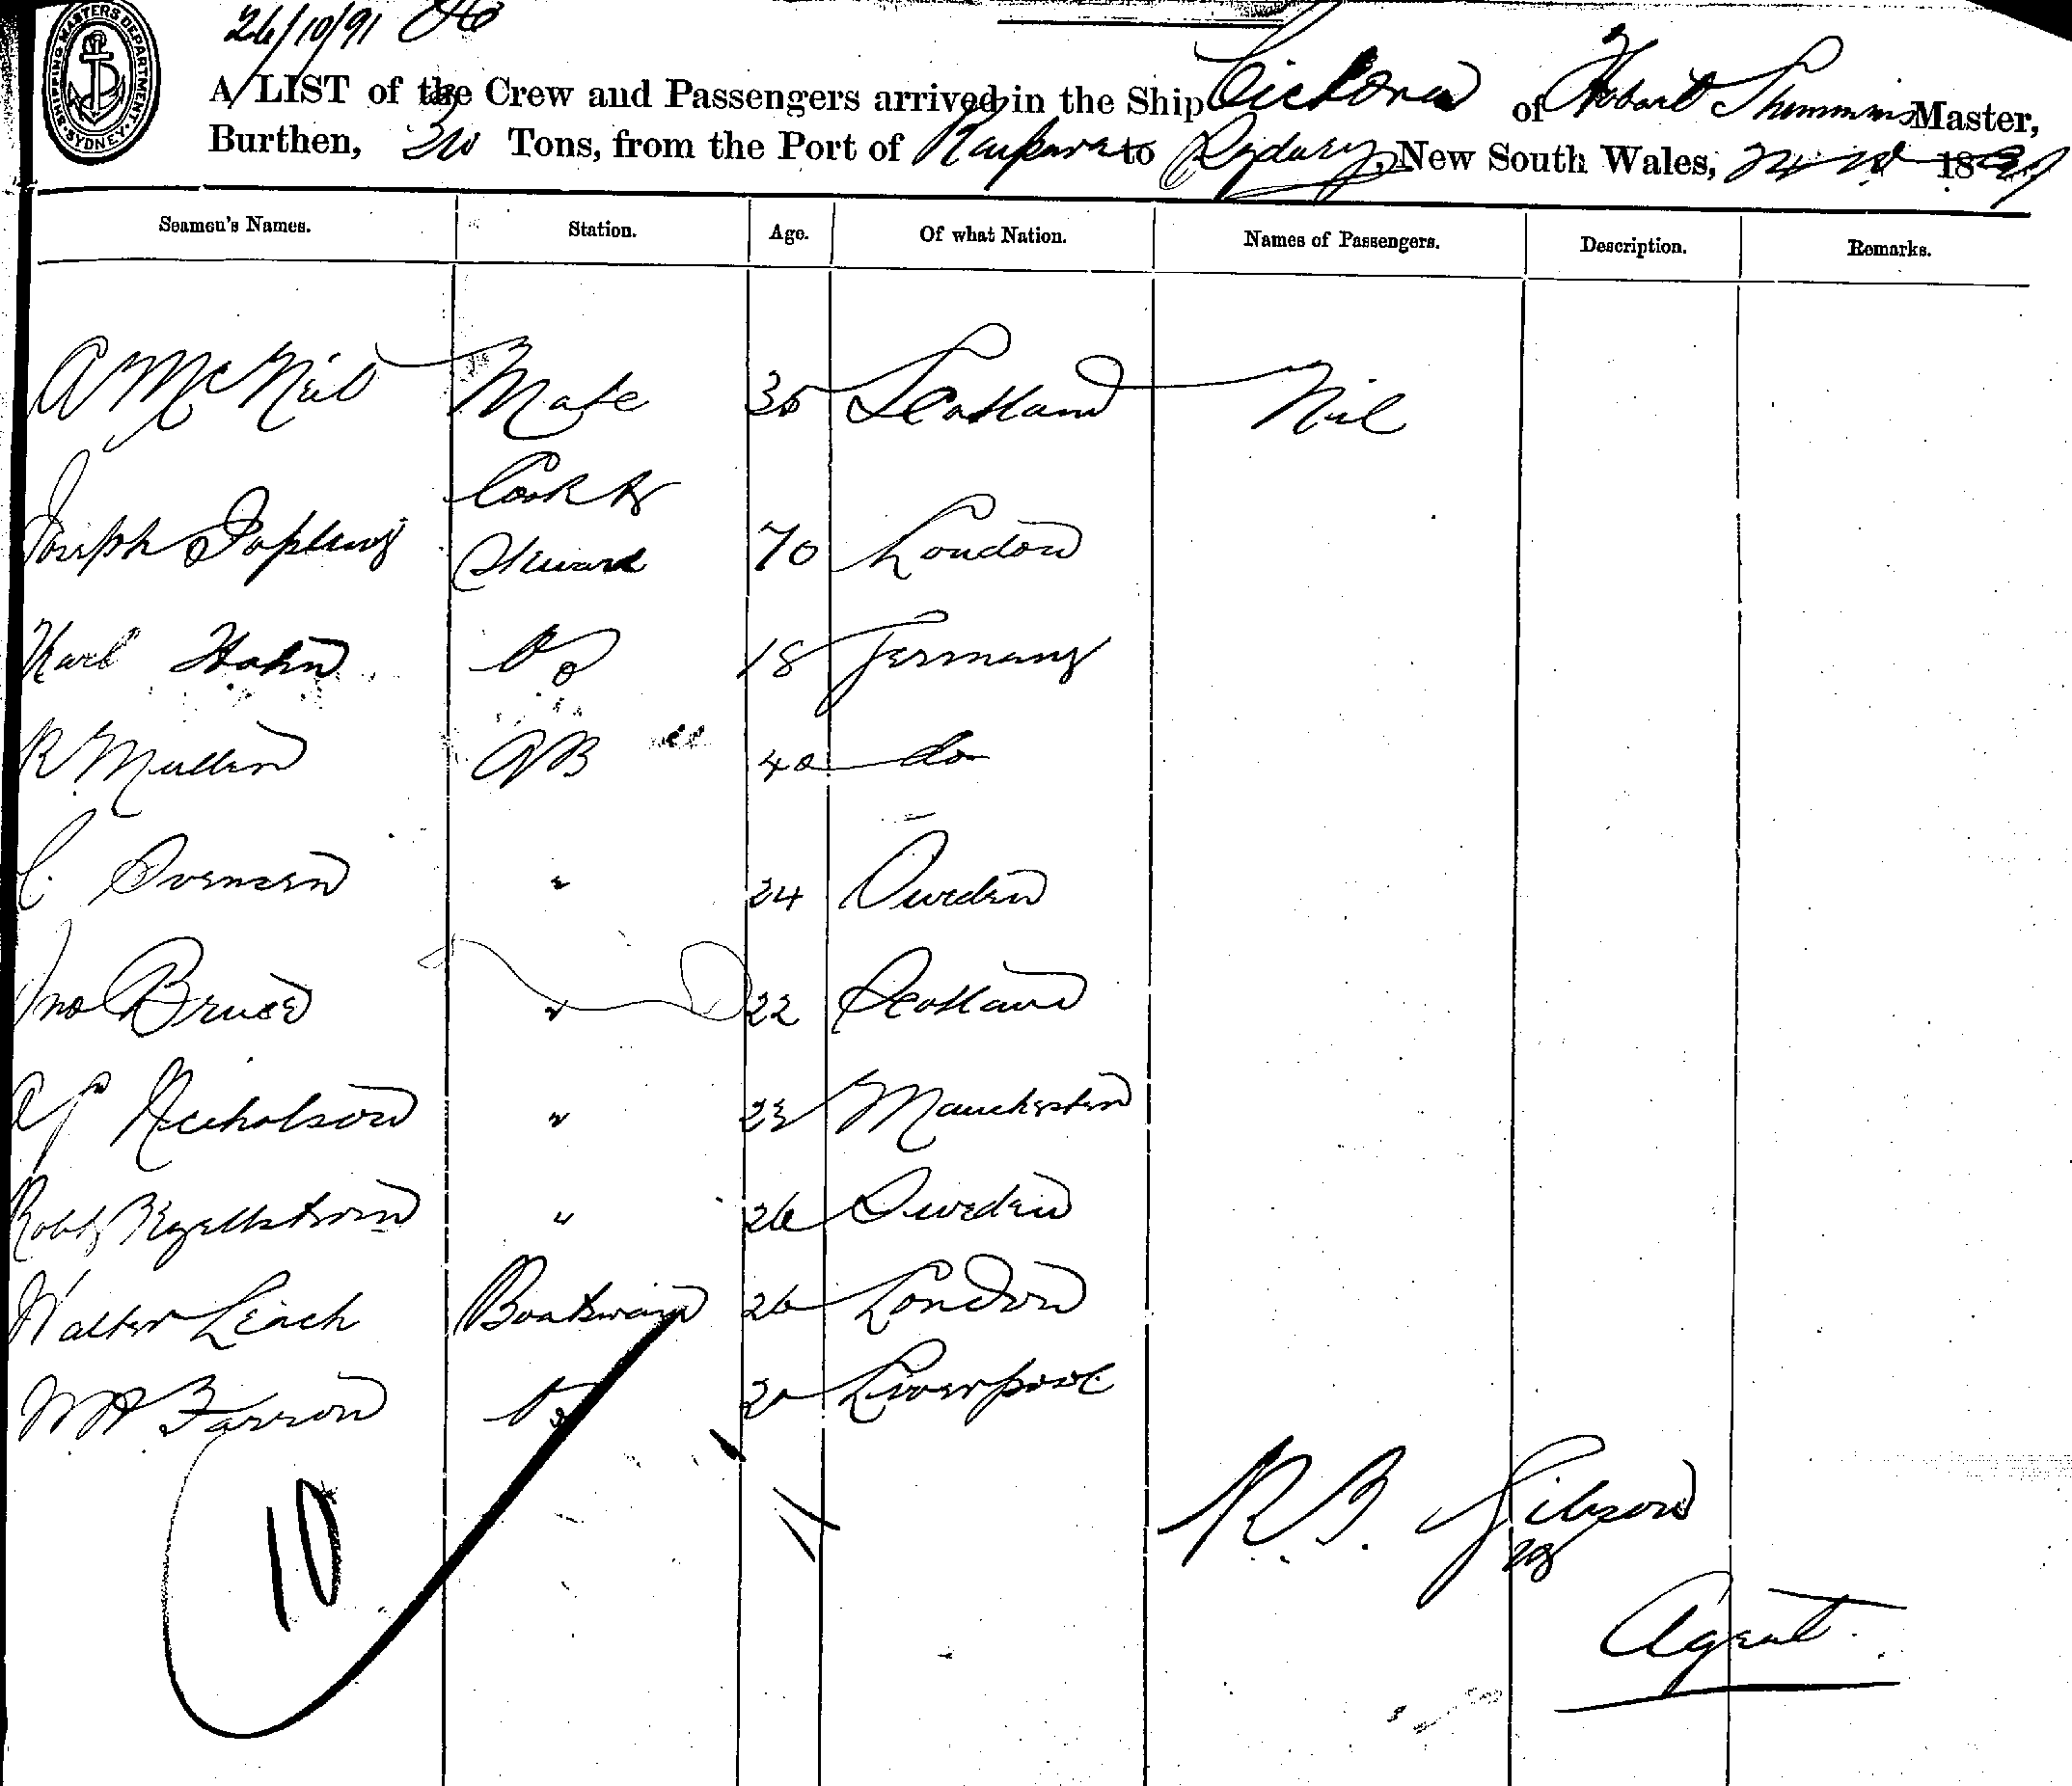 26/10/91
SHIPPING MASTERS DEPARTMENT. SYDNEY.
A LIST of the Crew and Passengers arrived in the Ship Victoria of Hobart Master,
Burthen, Tons, from the Port of Kaipara to Sydney, New South Wales, 1891
Seamen's Names. Station. Age. Of what Nation. Names of Passengers. Description. Remarks.
A McNeil Mate 35 Scotland Nil
Cook &
Joseph Jopling Steward 70 London
Karl Hahn OS 18 Germany
R Mullen AB 40 do
C. Svensen " 24 Sweden
Jno Bruce " 22 Scotland
Nicholson " 23 Manchester
Robt " 26 Sweden
Walter Leach Boatswain 26 London
Farron OS 20 Liverpool
10
R. Gibson
Agent.